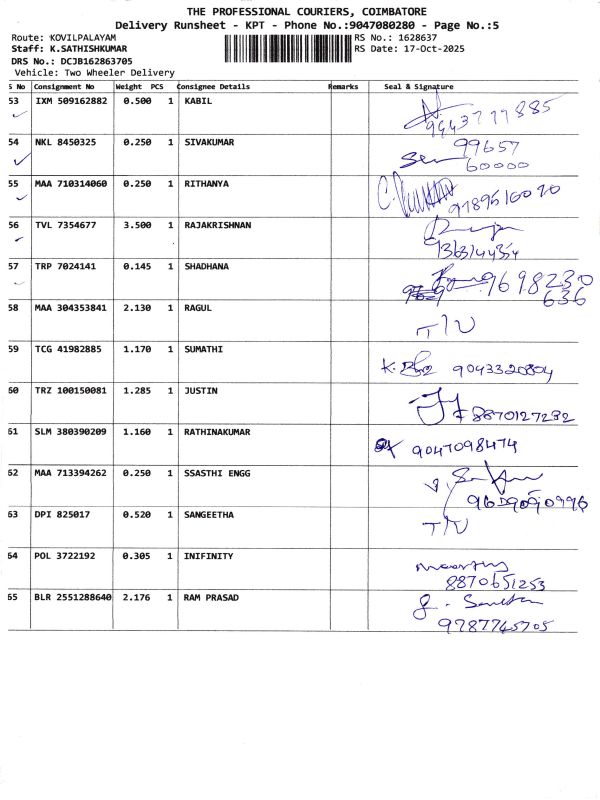 THE PROFESSIONAL COURIERS, COIMBATORE
Delivery Runsheet - KPT - Phone No.:9047080280 - Page No.:5
Route: KOVILPALAYAM
RS No.: 1628637
Staff: K.SATHISHKUMAR
RS Date: 17-Oct-2025
DRS No.: DCJB162863705
Vehicle: Two Wheeler Delivery
S No Consignment No Weight PCS Consignee Details Remarks Seal & Signature
53 IXM 509162882 0.500 1 KABIL
9443777885
54 NKL 8450325 0.250 1 SIVAKUMAR 99657
60000
55 MAA 710314060 0.250 1 RITHANYA
9789516070
56 TVL 7354677 3.500 1 RAJAKRISHNAN
57 TRP 7024141 0.145 1 SHADHANA 9698230
636
58 MAA 304353841 2.130 1 RAGUL
T/U
59 TCG 41982885 1.170 1 SUMATHI
9043320804
60 TRZ 100150081 1.285 1 JUSTIN
8870127232
61 SLM 380390209 1.160 1 RATHINAKUMAR
9047098474
62 MAA 713394262 0.250 1 SSASTHI ENGG
63 DPI 825017 0.520 1 SANGEETHA
T/U
64 POL 3722192 0.305 1 INIFINITY
8870651253
65 BLR 2551288640 2.176 1 RAM PRASAD
9787745705